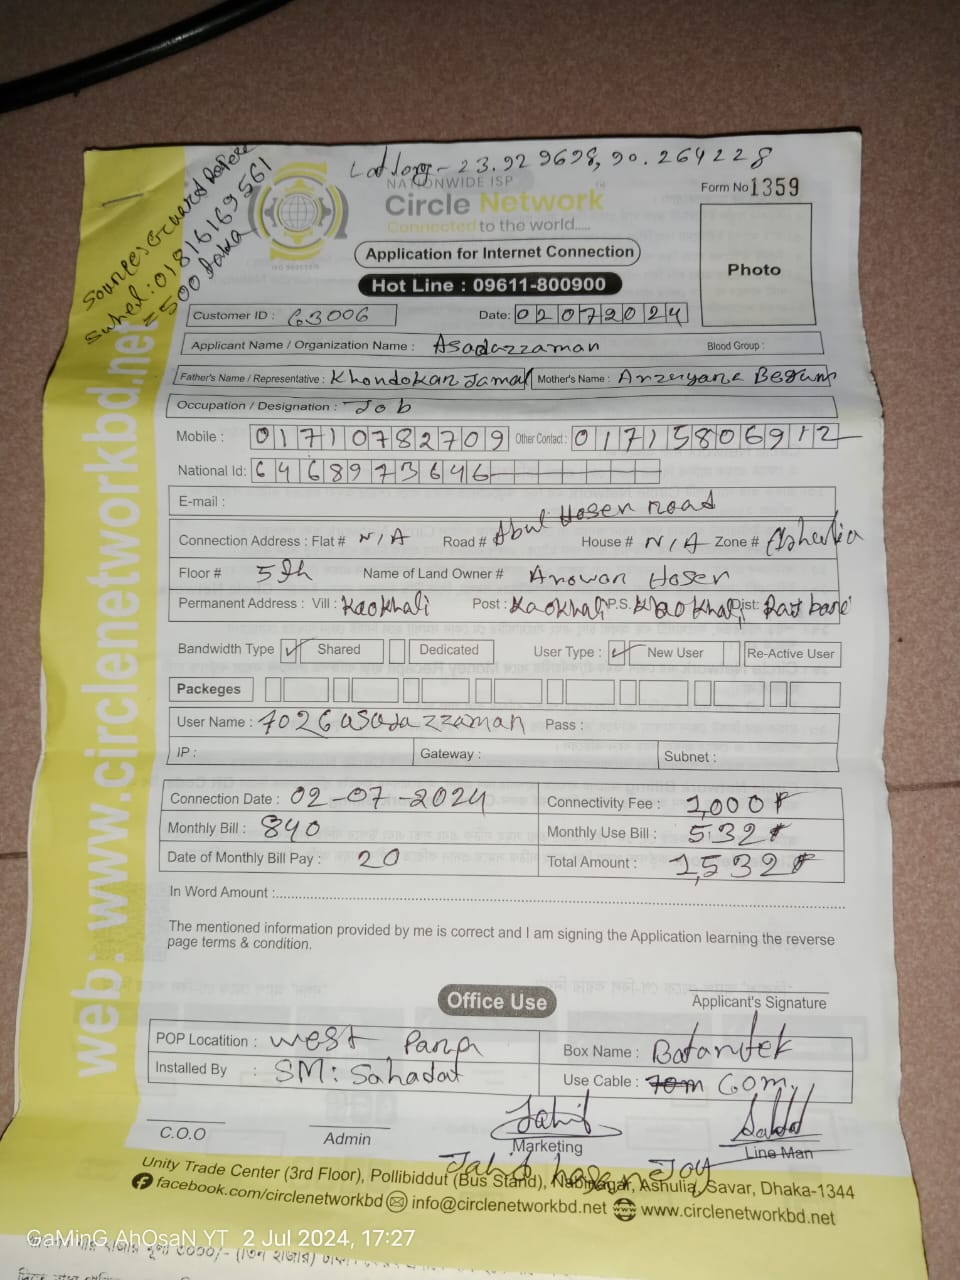 Lat long - 23.929698, 90.264228
Suhel: 01816169561
= 500 taka
NATIONWIDE ISP
Circle Network
Connected to the world.....
Form No 1359
Application for Internet Connection
Photo
Hot Line : 09611-800900
Customer ID : 63006 Date: 02072024
Applicant Name / Organization Name : Asadazzaman Blood Group :
Father's Name / Representative : Khondokar Jamal Mother's Name : Begum
Occupation / Designation : Job
Mobile : 01710782709 Other Contact : 01715806912
National Id: 6468973646
E-mail :
Connection Address : Flat # N/A Road # Abul Hosen road House # N/A Zone # Ashulia
Floor # 5th Name of Land Owner # Anowar Hosen
Permanent Address : Vill : Kaokhali Post : Kaokhali P.S. Dist:
Bandwidth Type Shared Dedicated User Type : New User Re-Active User
Packeges
User Name : 7026asadazzaman Pass :
IP : Gateway : Subnet :
Connection Date : 02-07-2024 Connectivity Fee : 1,000
Monthly Bill : 840 Monthly Use Bill : 532
Date of Monthly Bill Pay : 20 Total Amount : 1,532
In Word Amount :
The mentioned information provided by me is correct and I am signing the Application learning the reverse
page terms & condition.
Applicant's Signature
Office Use
POP Locatition : West Para Box Name : Batantek
Installed By : SM: Sahadat Use Cable : 70m 60m
C.O.O Admin Marketing Line Man
Jahid hasan Joy
Unity Trade Center (3rd Floor), Pollibiddut (Bus Stand), Nabinagar, Ashulia, Savar, Dhaka-1344
facebook.com/circlenetworkbd info@circlenetworkbd.net www.circlenetworkbd.net
web: www.circlenetworkbd.net
GaMinG AhOsaN YT 2 Jul 2024, 17:27